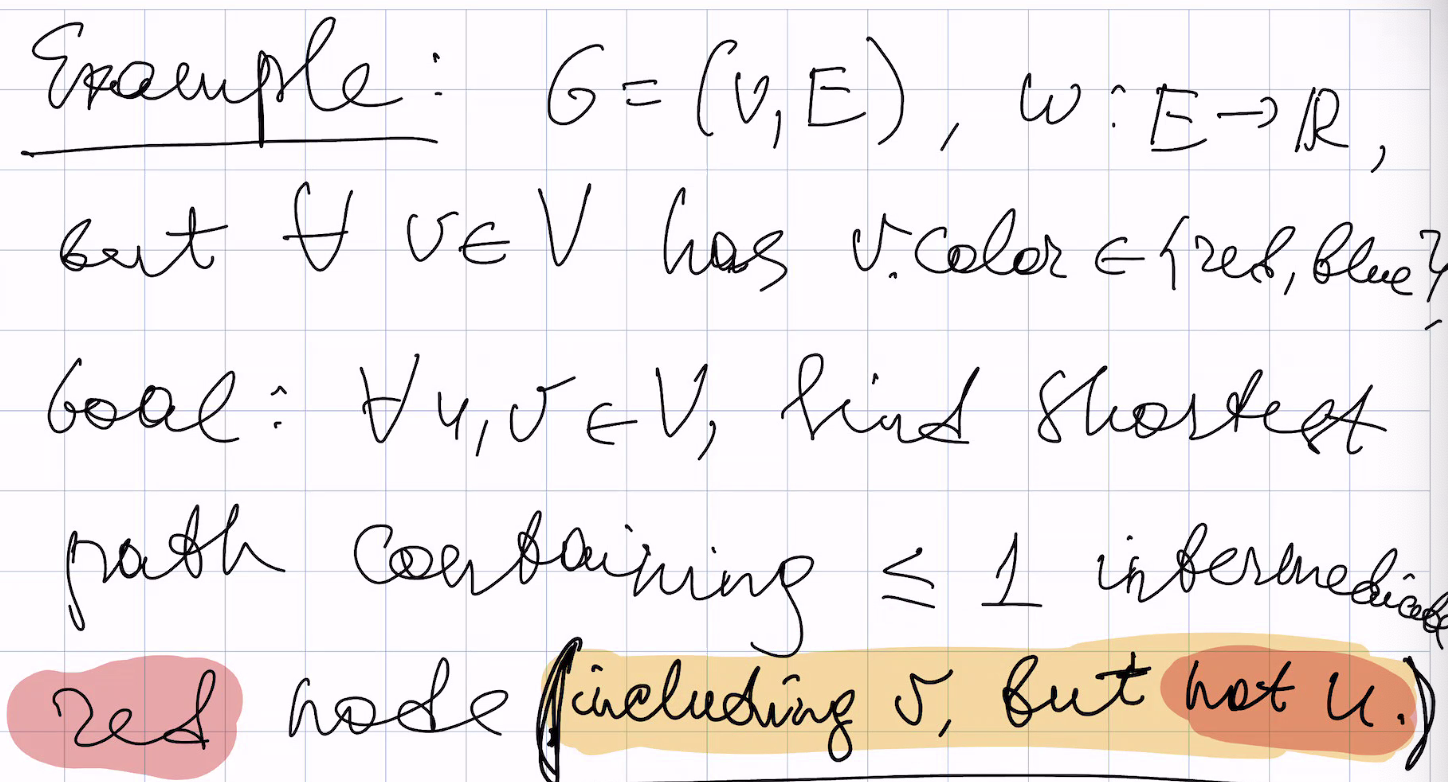 Example: G = (V, E), w: E → ℝ,
but ∀ v ∈ V has v.color ∈ {red, blue},
Goal: ∀ u, v ∈ V, find shortest
path containing ≤ 1 intermediate
red node (including v, but not u.)